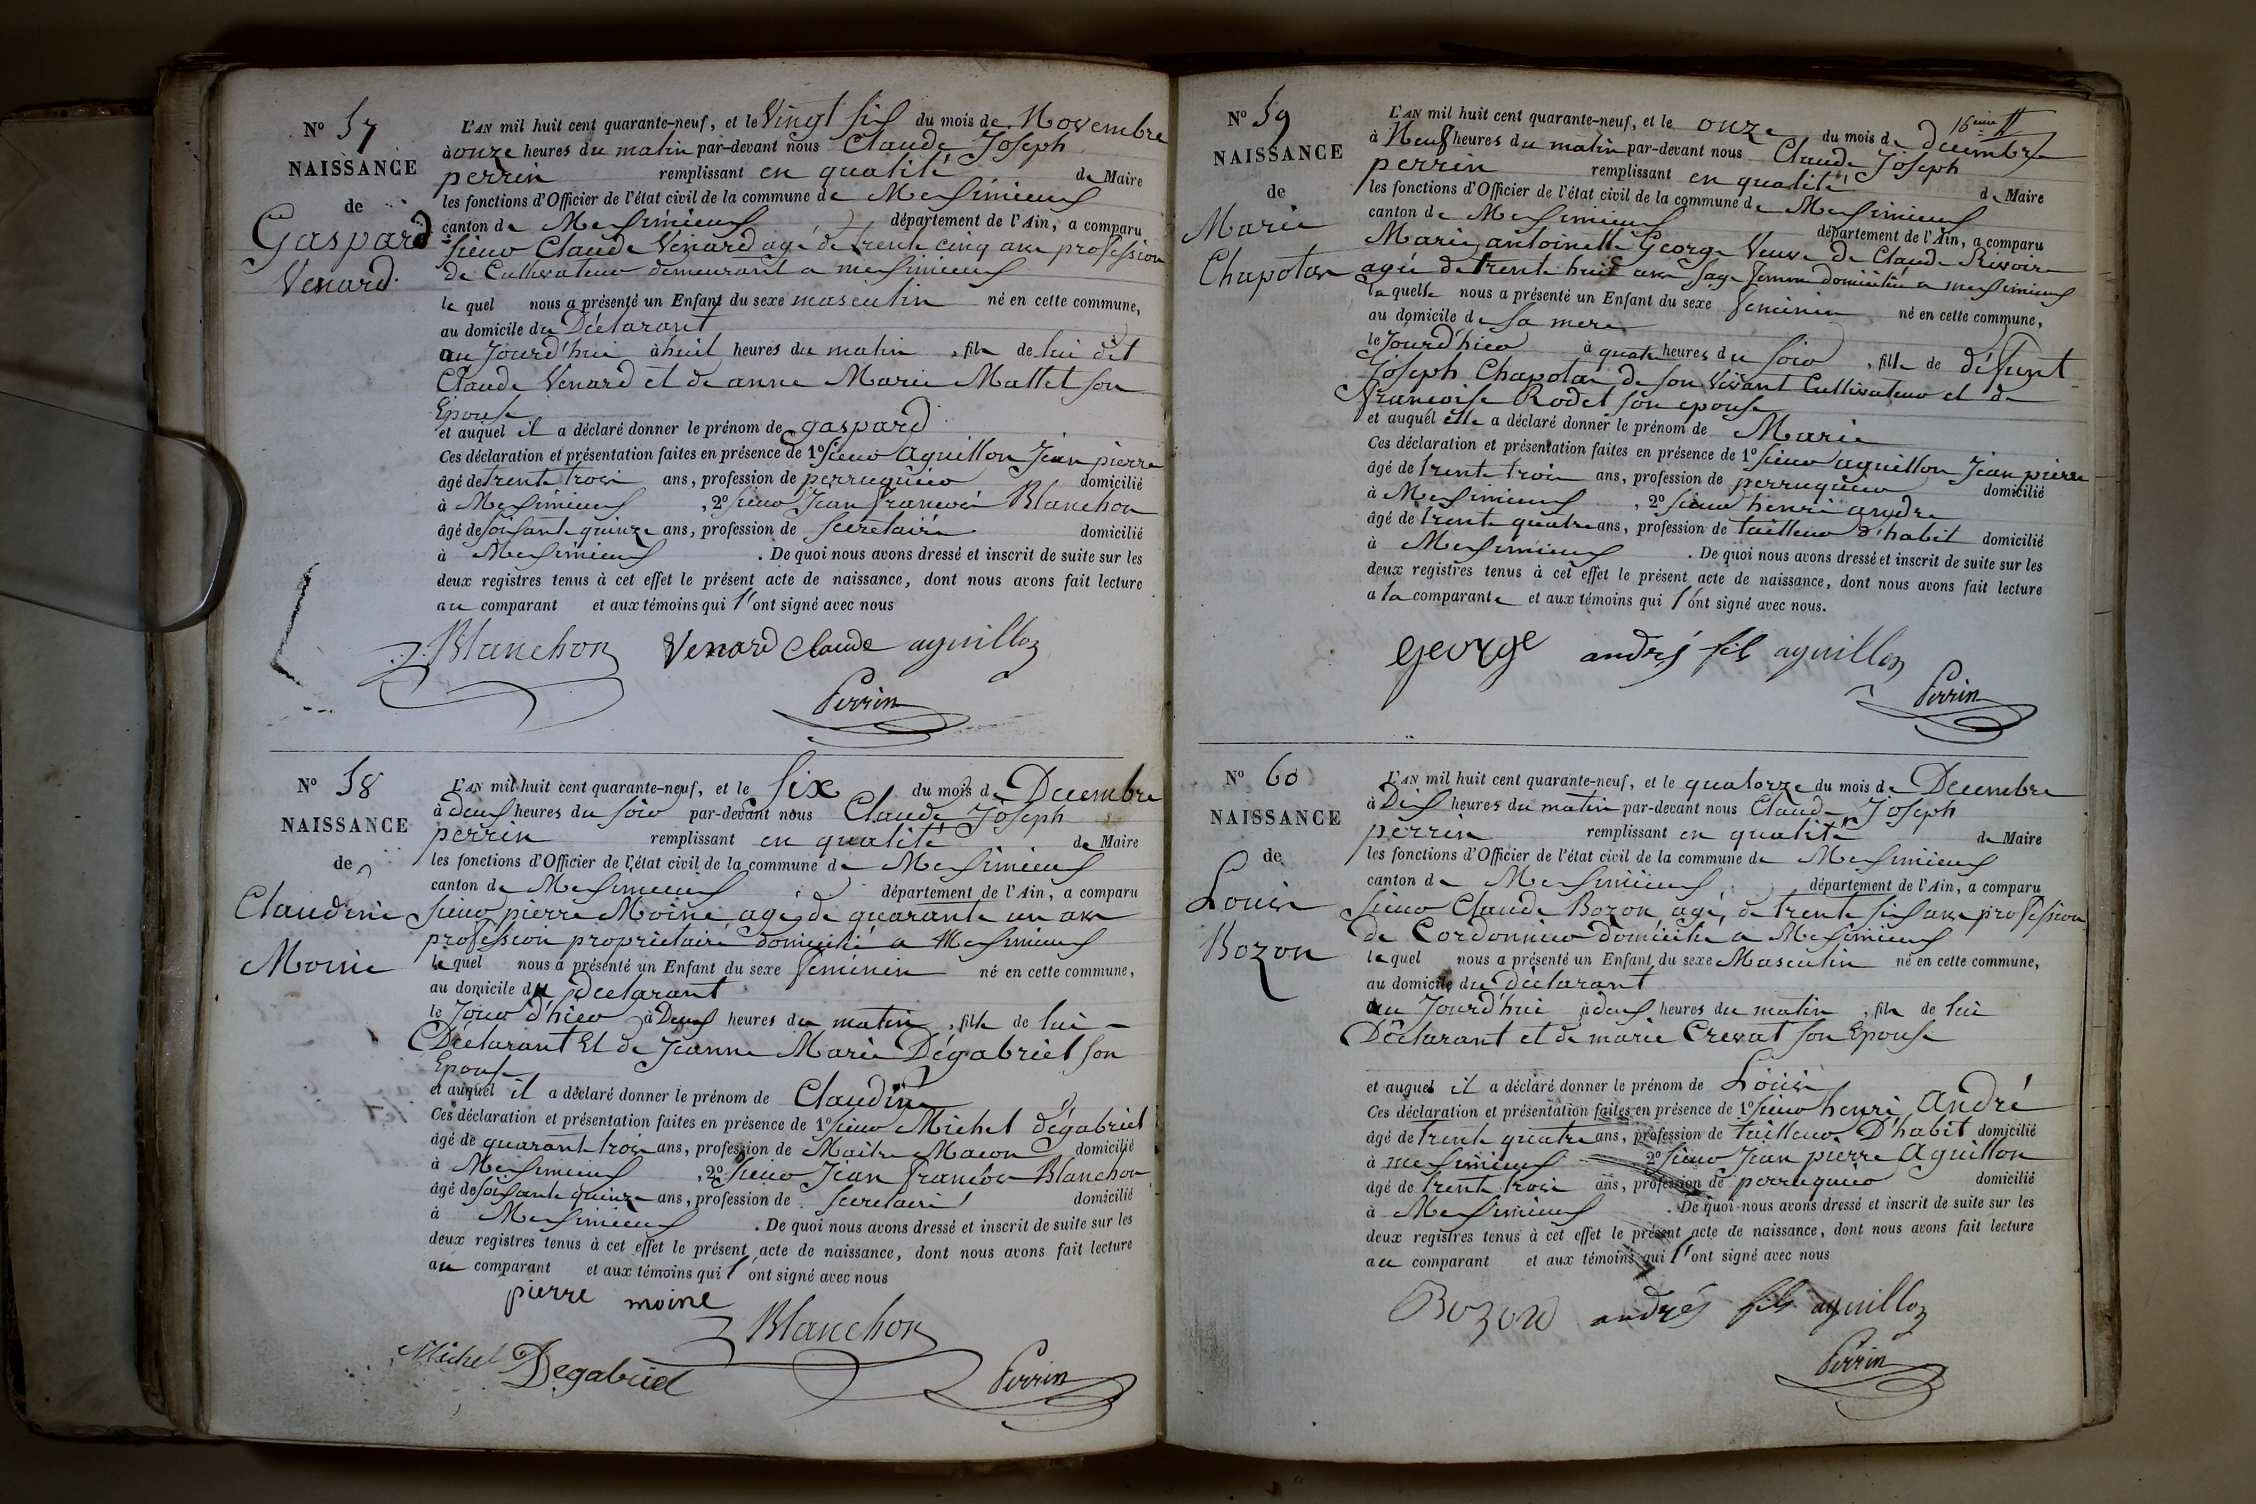 N° 57
NAISSANCE
de
Gaspard
Venard.
L'AN mil huit cent quarante-neuf, et le Vingt six du mois de Novembre
à onze heures du matin par-devant nous Claude Joseph
perrin remplissant en qualité de Maire
les fonctions d'Officier de l'état civil de la commune de Messimieux
canton de Messimieux département de l'Ain, a comparu
sieur Claude Vénard agé de trente cinq ans profession
de Cultivateur demeurant a messimieux
le quel nous a présenté un Enfant du sexe masculin né en cette commune,
au domicile du Déclarant
au Jourd'hui à huit heures du matin , fils de lui dit
Claude Venard et de anne Marie Mallet son
Epouse
et auquel il a déclaré donner le prénom de gaspard
Ces déclaration et présentation faites en présence de 1° sieur aguillon Jean pierre
âgé de trente trois ans, profession de perruquier domicilié
à Messimieux , 2° sieur Jean françois Blanchon
âgé de soixante quinze ans, profession de secretaire domicilié
à Messimieux . De quoi nous avons dressé et inscrit de suite sur les
deux registres tenus à cet effet le présent acte de naissance, dont nous avons fait lecture
au comparant et aux témoins qui l'ont signé avec nous
Blanchon Venard Claude aguillon
Perrin
N° 58
NAISSANCE
de
Claudine
Moine
L'AN mil huit cent quarante-neuf, et le Six du mois de Decembre
à deux heures du soir par-devant nous Claude Joseph
perrin remplissant en qualité de Maire
les fonctions d'Officier de l'état civil de la commune de Messimieux
canton de Messimieux département de l'Ain, a comparu
sieur pierre Moine agé de quarante un ans
profession propriétaire domicilié a Messimieux
le quel nous a présenté un Enfant du sexe feminin né en cette commune,
au domicile du declarant
le Jour d'hier à Deux heures du matin , fille de lui
Déclarant Et de Jeanne Marie Dégabriel son
Epouse
et auquel il a déclaré donner le prénom de Claudine
Ces déclaration et présentation faites en présence de 1° sieur Michel dégabriel
âgé de quarant trois ans, profession de Maitre Macon domicilié
à Messimieux , 2° sieur Jean françois Blanchon
âgé de soixante quinze ans, profession de secretaire domicilié
à Messimieux . De quoi nous avons dressé et inscrit de suite sur les
deux registres tenus à cet effet le présent acte de naissance, dont nous avons fait lecture
au comparant et aux témoins qui l'ont signé avec nous
pierre moine
Blanchon
Michel Degabriel Perrin
N° 59
NAISSANCE
de
Marie
Chapolan
16eme
L'AN mil huit cent quarante-neuf, et le onze du mois de decembre
à Neuf heures du matin par-devant nous Claude Joseph
perrin remplissant en qualité de Maire
les fonctions d'Officier de l'état civil de la commune de Messimieux
canton de Messimieux département de l'Ain, a comparu
Marie antoinette George Veuve de Claude Rivoire
agée de trente huit ans sage femme domiciliée a messimieux
la quelle nous a présenté un Enfant du sexe feminin né en cette commune,
au domicile de sa mere
le Jourd'hier à quatre heures du soir , fille de défunt
Joseph Chapolan de son vivant Cultivateur et de
francoise Rodet son epouse
et auquel elle a déclaré donner le prénom de Marie
Ces déclaration et présentation faites en présence de 1° sieur aguillon Jean pierre
âgé de trente trois ans, profession de perruquier domicilié
à Messimieux , 2° sieur henri andre
âgé de trente quatre ans, profession de tailleur d'habit domicilié
à Messimieux . De quoi nous avons dressé et inscrit de suite sur les
deux registres tenus à cet effet le présent acte de naissance, dont nous avons fait lecture
a la comparante et aux témoins qui l'ont signé avec nous.
george andré fils aguillon
Perrin
N° 60
NAISSANCE
de
Louis
Bozon
L'AN mil huit cent quarante-neuf, et le quatorze du mois de Decembre
à Dix heures du matin par-devant nous Claude Joseph
perrin remplissant en qualité de Maire
les fonctions d'Officier de l'état civil de la commune de Messimieux
canton de Messimieux département de l'Ain, a comparu
sieur Claude Bozon agé de trente six ans profession
de Cordonnier domicilié a Messimieux
le quel nous a présenté un Enfant du sexe Masculin né en cette commune,
au domicile du déclarant
au Jourd'hui à deux heures du matin , fils de lui
Déclarant et de marie Crevat son Epouse
et auquel il a déclaré donner le prénom de Louis
Ces déclaration et présentation faites en présence de 1° sieur henri André
âgé de trente quatre ans, profession de tailleur D'habit domicilié
à messimieux 2° sieur Jean pierre Aguillon
âgé de trente trois ans, profession de perruquier domicilié
à Messimieux . De quoi nous avons dressé et inscrit de suite sur les
deux registres tenus à cet effet le présent acte de naissance, dont nous avons fait lecture
au comparant et aux témoins qui l'ont signé avec nous
Bozon andrés fils aguillon
Perrin